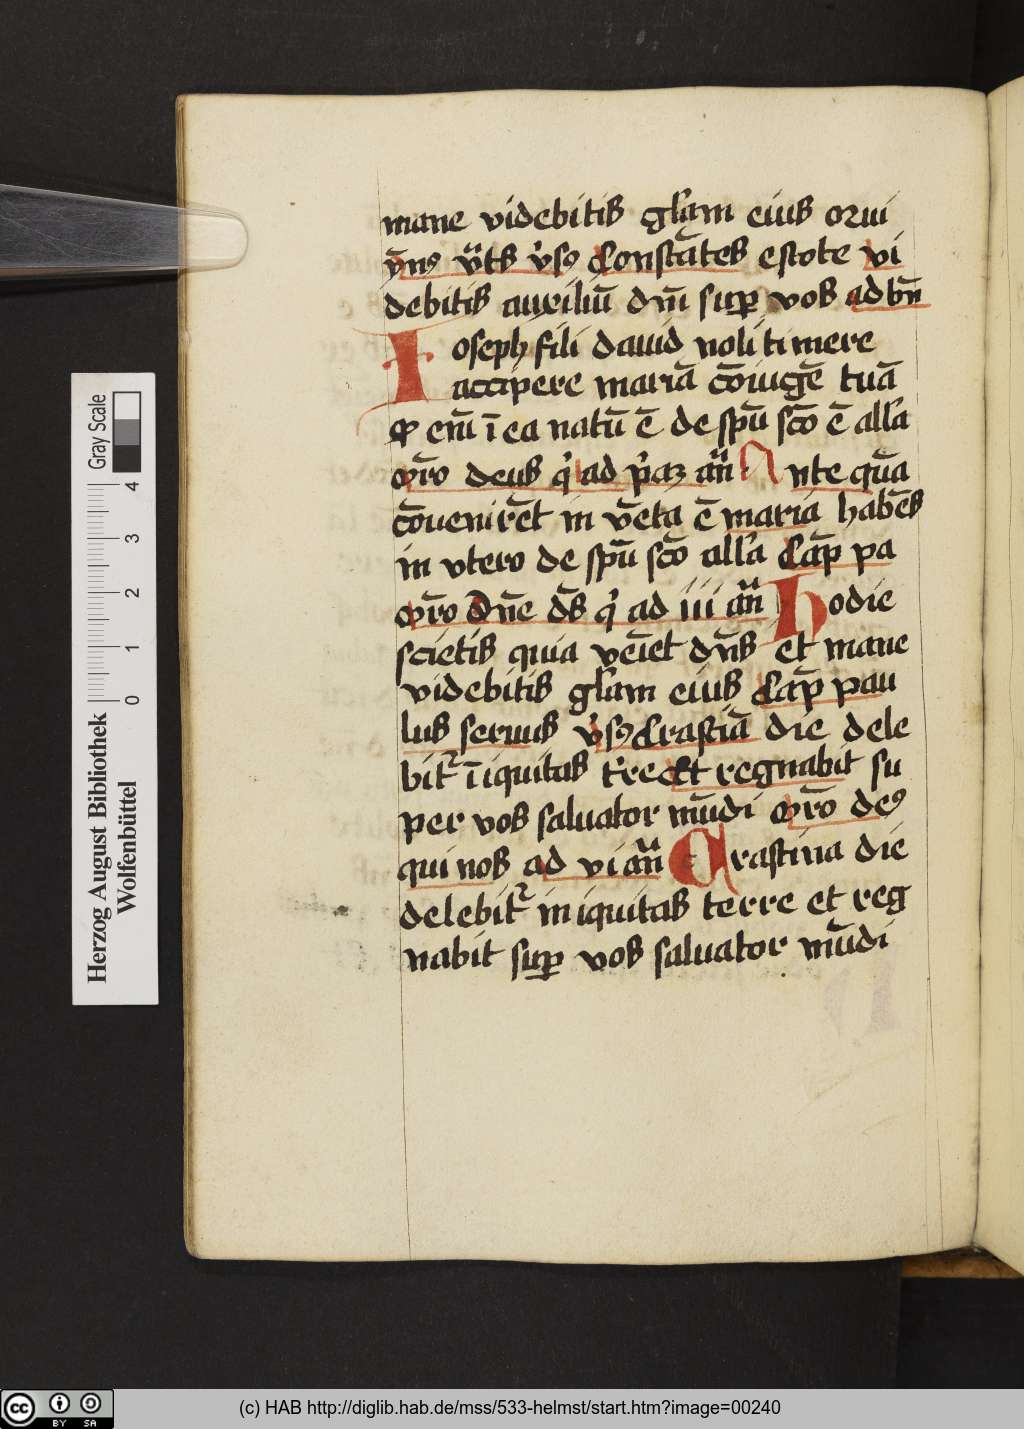 mane videbitis gl̄am eius orui
ȳnꝯ v̄ts v̓sꝯ Constātes estote vi
debitis auxiliū dn̄i suꝑ vos ad bn̄
Ioseph fili dauid noli timere
accipere mariā cōiugē tuā
ꝙ em̄ ī ea natū ē de spū sc̄o ē all̄a
or̄o deus q̓ ad p̓aꝫ an̄ Ante quā
cōuenirēt in vēta ē maria habēs
in vtero de spū sc̄o all̄a Cap̄ pa
or̄o dn̄e ds̄ q̓ ad iii an̄ Hodie
scietis quia vēiet dn̄s et mane
videbitis gl̄am eius Cap̄ pau
lus seruus v̓sꝯ Crastiā die dele
bit᷑ īiquitas t̓re Et regnabit su
per vos saluator mūdi or̄o deꝯ
qui nos ad vi an̄ Crastina die
delebit᷑ iniquitas terre et reg
nabit suꝑ vos saluator mūdi
Gray Scale
4
3
2
1
0
Herzog August Bibliothek
Wolfenbüttel
cc BY SA
(c) HAB http://diglib.hab.de/mss/533-helmst/start.htm?image=00240